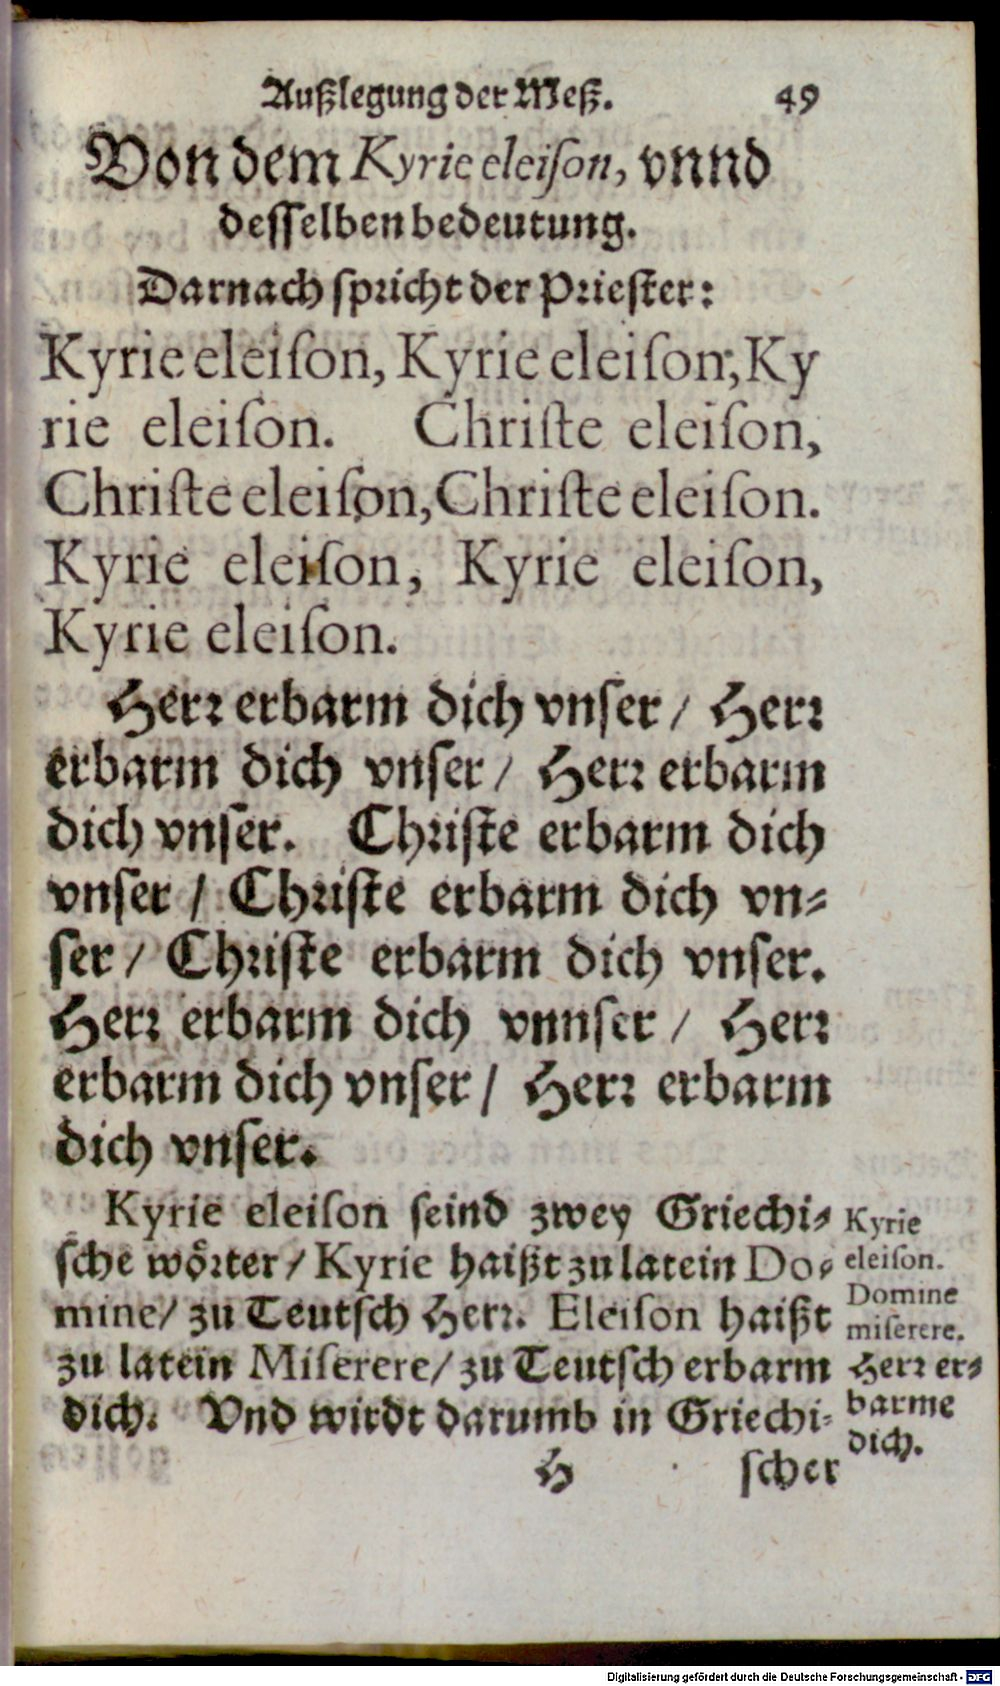 Außlegung der Meß. 49
Von dem Kyrie eleiſon, vnnd
deſſelben bedeutung.
Darnach ſpricht der Prieſter:
Kyrie eleiſon, Kyrie eleiſon, Ky
rie eleiſon. Chriſte eleiſon,
Chriſte eleiſon, Chriſte eleiſon.
Kyrie eleiſon, Kyrie eleiſon,
Kyrie eleiſon.
Herr erbarm dich vnſer / Herr
erbarm dich vnſer / Herr erbarm
dich vnſer. Chriſte erbarm dich
vnſer / Chriſte erbarm dich vn⸗
ſer / Chriſte erbarm dich vnſer.
Herr erbarm dich vnnſer / Herr
erbarm dich vnſer / Herr erbarm
dich vnſer.
Kyrie eleiſon ſeind zwey Griechi⸗
ſche woͤrter / Kyrie haißt zu latein Do⸗
mine / zu Teutſch Herr. Eleiſon haißt
zu latein Miſerere / zu Teutſch erbarm
dich. Vnd wirdt darumb in Griechi⸗
H ſcher
Kyrie
eleiſon.
Domine
miſerere.
Herr er⸗
barme
dich.
Digitalisierung gefördert durch die Deutsche Forschungsgemeinschaft - DFG